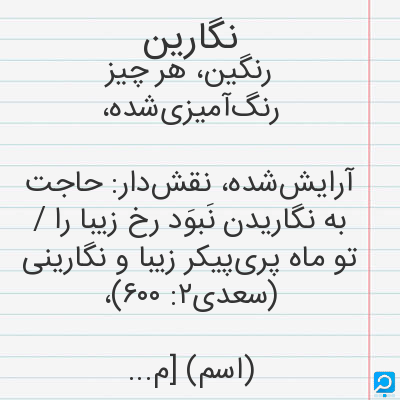 نگارین
رنگین، هر چیز
رنگ‌آمیزی‌شده،
آرایش‌شده، نقش‌دار: حاجت
به نگاریدن نَبوَد رخ زیبا را /
تو ماه پری‌پیکر زیبا و نگارینی
(سعدی۲: ۶۰۰)،
(اسم) [م...